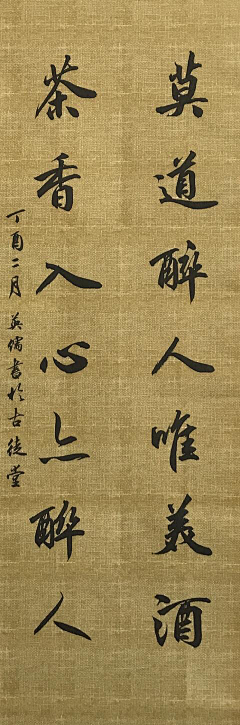 莫道醉人唯美酒
茶香入心亦醉人
丁酉二月 英儒書於古徒堂